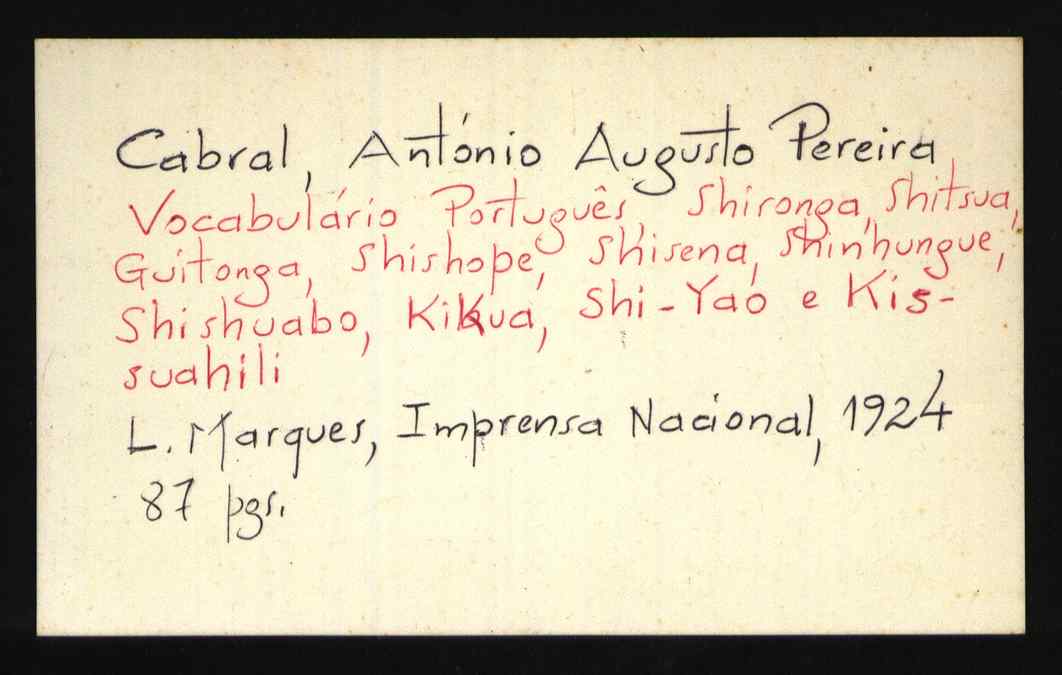 Cabral, António Augusto Pereira
Vocabulário Português, Shironga, Shitsua,
Guitonga, Shishope, Shisena, Shinhungue,
Shishuabo, Kikua, Shi-Yao e Kis-
suahili
L. Marques, Imprensa Nacional, 1924
87 pgs.